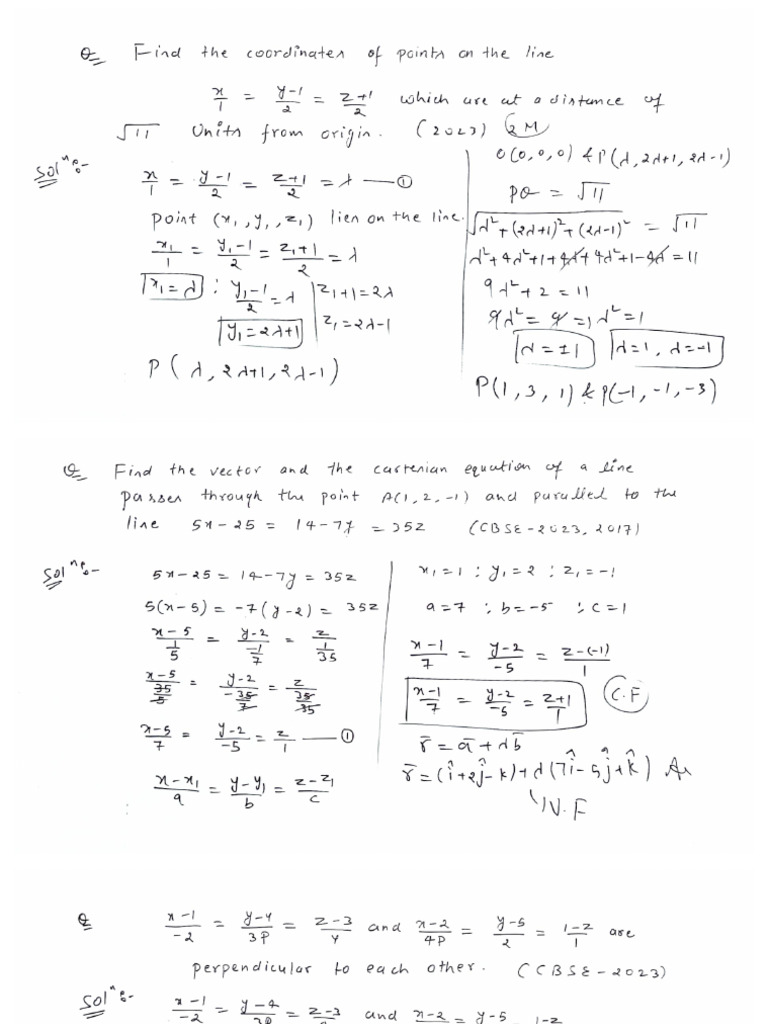 Q Find the coordinates of points on the line
x/1 = y-1/2 = z+1/2 which are at a distance of
√11 Units from origin. (2023) (2M)
Solⁿ:-
x/1 = y-1/2 = z+1/2 = λ —①
point (x₁, y₁, z₁) lies on the line.
x₁/1 = y₁-1/2 = z₁+1/2 = λ
x₁=λ : y₁-1/2 = λ | z₁+1=2λ
y₁=2λ+1 | z₁=2λ-1
P(λ, 2λ+1, 2λ-1)
O(0,0,0) & P(λ, 2λ+1, 2λ-1)
PO = √11
√λ²+(2λ+1)²+(2λ-1)² = √11
λ²+4λ²+1+4λ+4λ²+1-4λ=11
9λ²+2=11
9λ²=9 ⇒ λ²=1
λ=±1 λ=1, λ=-1
P(1,3,1) & P(-1,-1,-3)
Q Find the vector and the cartesian equation of a line
passes through the point A(1,2,-1) and parallel to the
line 5x-25 = 14-7y = 35z (CBSE-2023, 2017)
Solⁿ:-
5x-25=14-7y=35z
5(x-5)=-7(y-2)=35z
x-5/1/5 = y-2/-1/7 = z/1/35
x-5/35/5 = y-2/-35/7 = z/35/35
x-5/7 = y-2/-5 = z/1 —①
x-x₁/a = y-y₁/b = z-z₁/c
x₁=1 : y₁=2 : z₁=-1
a=7 : b=-5 : c=1
x-1/7 = y-2/-5 = z-(-1)/1
x-1/7 = y-2/-5 = z+1/1 (C.F)
r̄=ā+λb̄
r̄=(î+2ĵ-k)+λ(7î-5ĵ+k̂) An
V.F
Q x-1/-2 = y-4/3P = z-3/4 and x-2/4P = y-5/2 = 1-z/1 are
perpendicular to each other. (CCBSE-2023)
Solⁿ:-
x-1/-2 = y-4/3P = z-3 and x-2 = y-5 = 1-z